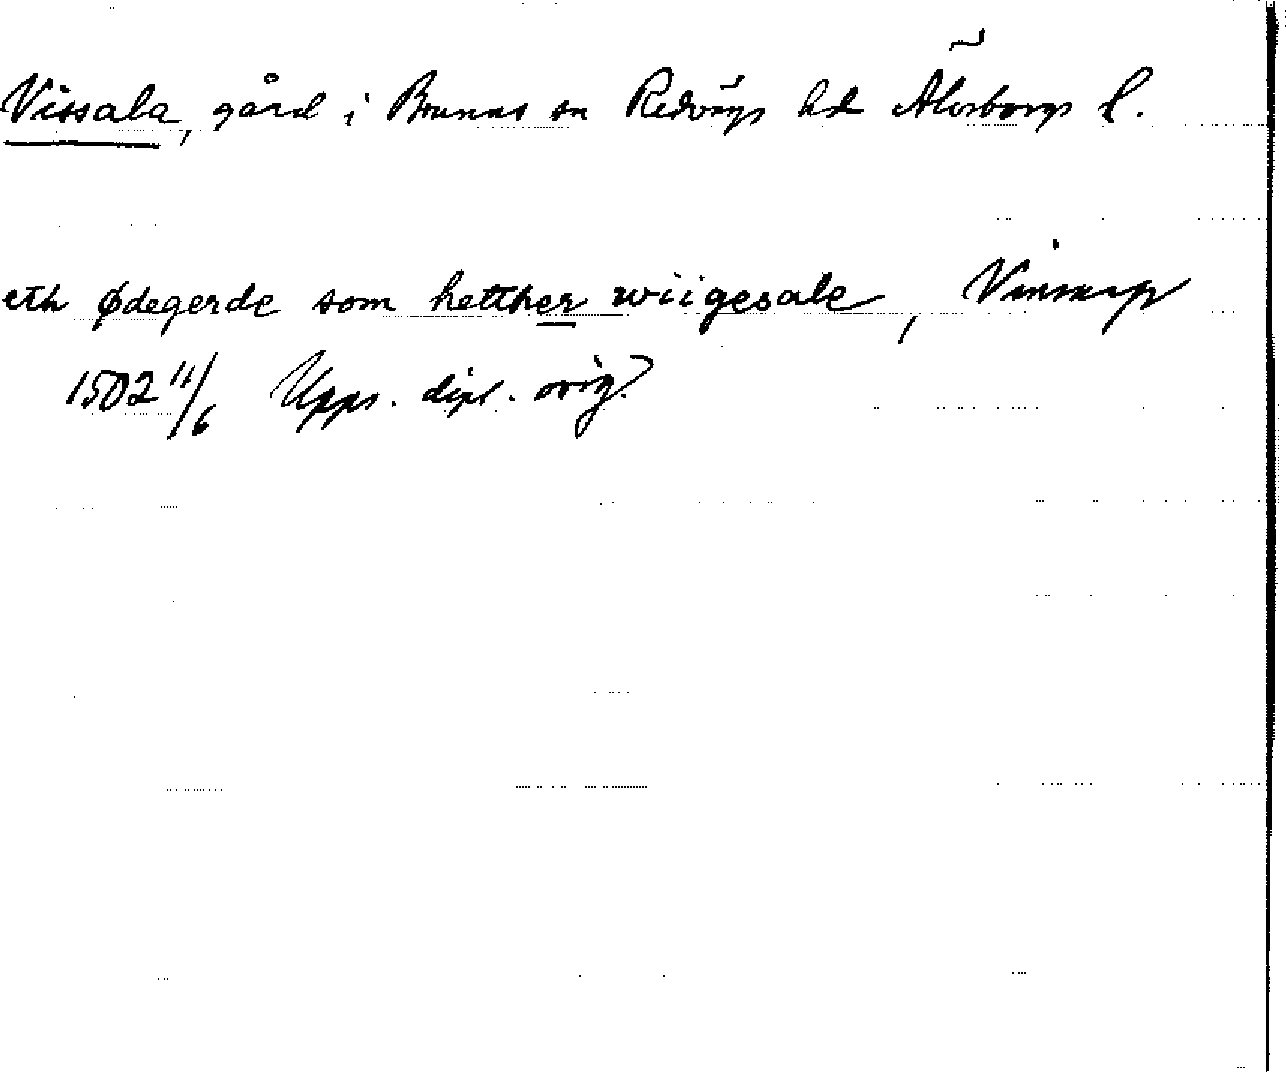 Vissala, gård i Brunns sn Redvägs hd Älvsborgs l.
eth ødegerde som hetther wiigesale, Vinsarp
1502 11/6 Upps. dipl. orig.